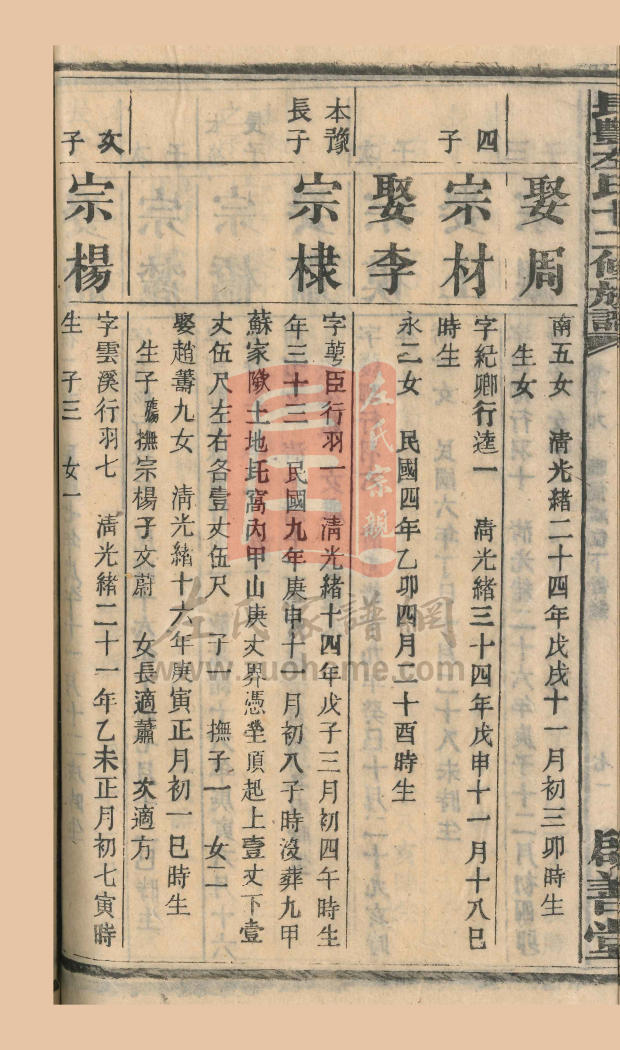 長豐左氏十二修族譜
啟善堂
娶周
南五女 清光緒二十四年戊戌十一月初三卯時生
生女
四子
宗材
字紀卿行逵一 清光緒三十四年戊申十一月十八巳
時生
娶李
永二女 民國四年乙卯四月二十酉時生
本豫
長子
宗棣
字萼臣行羽一 清光緒十四年戊子三月初四午時生
年三十三 民國九年庚申十一月初八子時沒葬九甲
蘇家墩土地坨窩內甲山庚丈界憑塋頂起上壹丈下壹
丈伍尺左右各壹丈伍尺 子一 撫子一 女二
娶趙籌九女 清光緒十六年庚寅正月初一巳時生
生子殤撫宗楊子文蔚 女長適蕭 次適方
次子
宗楊
字雲溪行羽七 清光緒二十一年乙未正月初七寅時
生 子三 女一
左氏宗親
左氏家譜網
www.zuohome.com